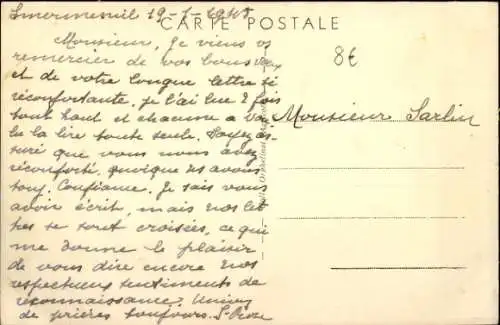 Smermesnil 19-1-1948
CARTE POSTALE
8€
Monsieur, Je viens vs
remercier de vos bons vœux
et de votre longue lettre si
réconfortante. Je l'ai lue 2 fois
tout haut et chacune a vo
le la lire toute seule. Soyez as-
suré que vous nous avez
réconforté, quoique ns avons
touj. Confiance. Je sais vous
avoir écrit, mais nos let
tres se sont croisées, ce qui
me donne le plaisir
de vous dire encore nos
respectueux sentiments de
reconnaissance. Union
de prières toujours. S.
Monsieur Sarlin